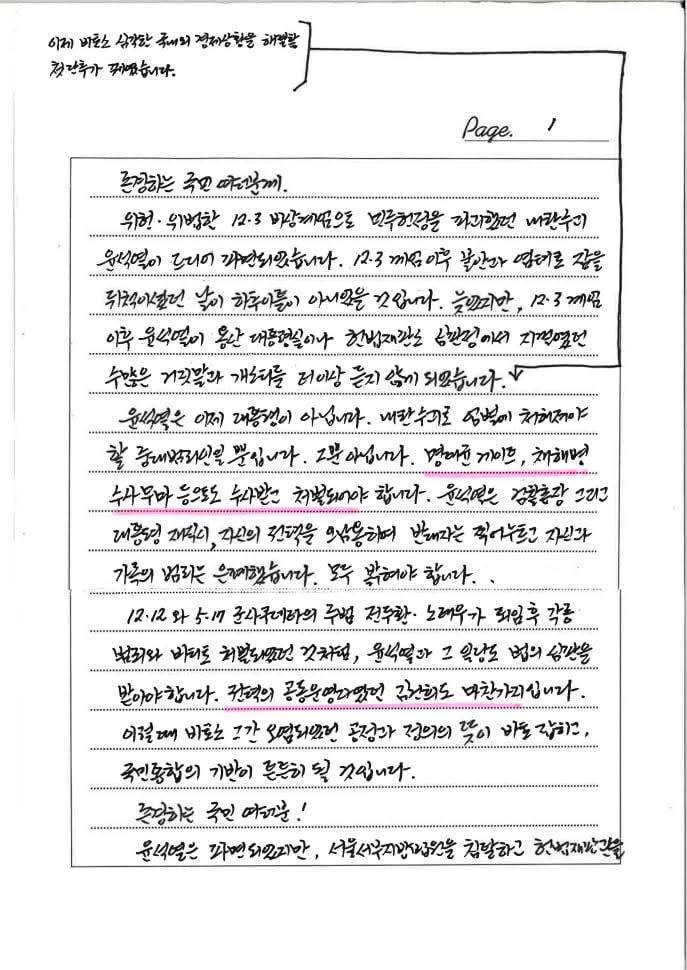 이제 비로소 심각한 국내외 경제상황을 해결할
첫 단추가 꿰였습니다.
Page. 1
존경하는 국민 여러분께.
위헌·위법한 12.3 비상계엄으로 민주헌정을 파괴했던 내란수괴
윤석열이 드디어 파면되었습니다. 12.3 계엄 이후 불안과 염려로 잠을
뒤척이셨던 날이 하루이틀이 아니었을 것입니다. 늦었지만, 12.3 계엄
이후 윤석열이 용산 대통령실이나 헌법재판소 심판정에서 지껄였던
수많은 거짓말과 개소리를 더이상 듣지 않게 되었습니다.
윤석열은 이제 대통령이 아닙니다. 내란수괴로 엄벌에 처해져야
할 중대범죄인일 뿐입니다. 그뿐 아닙니다. 명태균 게이트, 채해병
수사무마 등으로도 수사받고 처벌되어야 합니다. 윤석열은 검찰총장 그리고
대통령 재직시, 자신의 권력을 오남용하며 반대자는 찍어누르고 자신과
가족의 범죄는 은폐했습니다. 모두 밝혀야 합니다.
12.12와 5.17 군사쿠데타의 주범 전두환·노태우가 퇴임 후 각종
범죄와 비리로 처벌되었던 것처럼, 윤석열과 그 일당도 법의 심판을
받아야 합니다. 권력의 공동운영자였던 김건희도 마찬가지입니다.
이럴 때 비로소 그간 오염되었던 공정과 정의의 뜻이 바로 잡히고,
국민통합의 기반이 튼튼히 될 것입니다.
존경하는 국민 여러분!
윤석열은 파면되었지만, 서울서부지방법원을 침탈하고 헌법재판관을